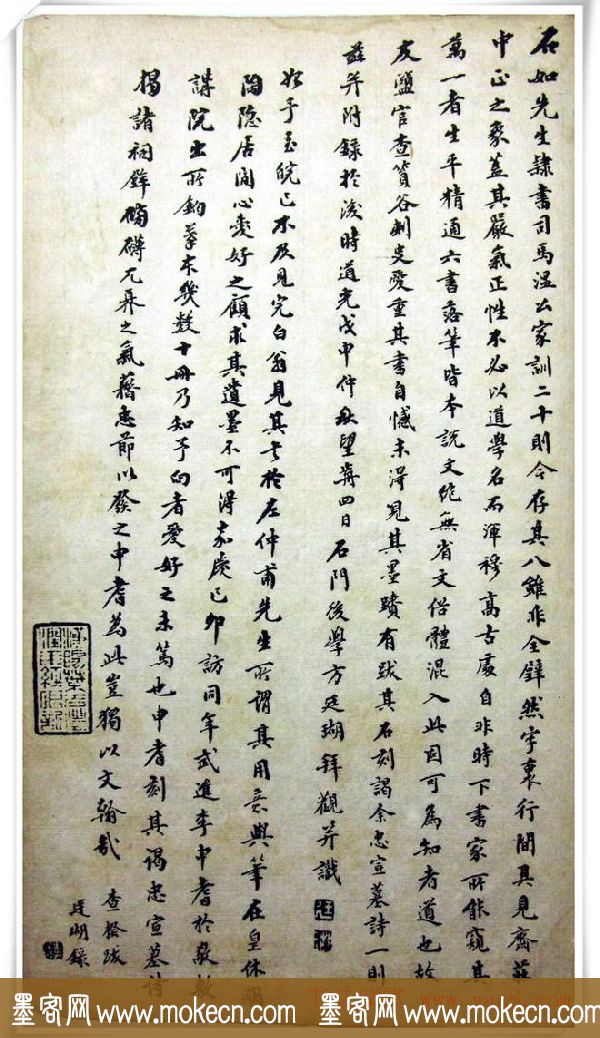 石如先生隸書司馬溫公家訓二十則今存其八雖非全璧然字裏行間具見齊莊
中正之象蓋其嚴氣正性不必以道學名而渾穆高古處自非時下書家所能窺其
萬一者生平精通六書落筆皆本說文絕無省文俗體混入此因可為知者道也故
友鹽官查篔谷刺史愛重其書自憾未得見其墨蹟有跋其石刻謁余忠宣墓詩一則
茲并附錄於後時道光戊申仲秋望前四日石門後學方廷瑚拜觀并識
始予至皖已不及見完白翁見其書於左仲甫先生所謂其用意與筆在皇休明
陶隱居間心焉好之顧求其遺墨不可得嘉慶己卯訪同年武進李申耆於敬敷
講院出所鉤摹本幾數十冊乃知予向者愛好之未篤也申耆刻其謁忠宣墓詩
揭諸祠壁磅礴兀奡之氣藉忠節以發之申耆為此豈獨以文翰哉
查揆跋
廷瑚錄
墨客网 www.mokecn.com 墨客网 www.mokecn.com